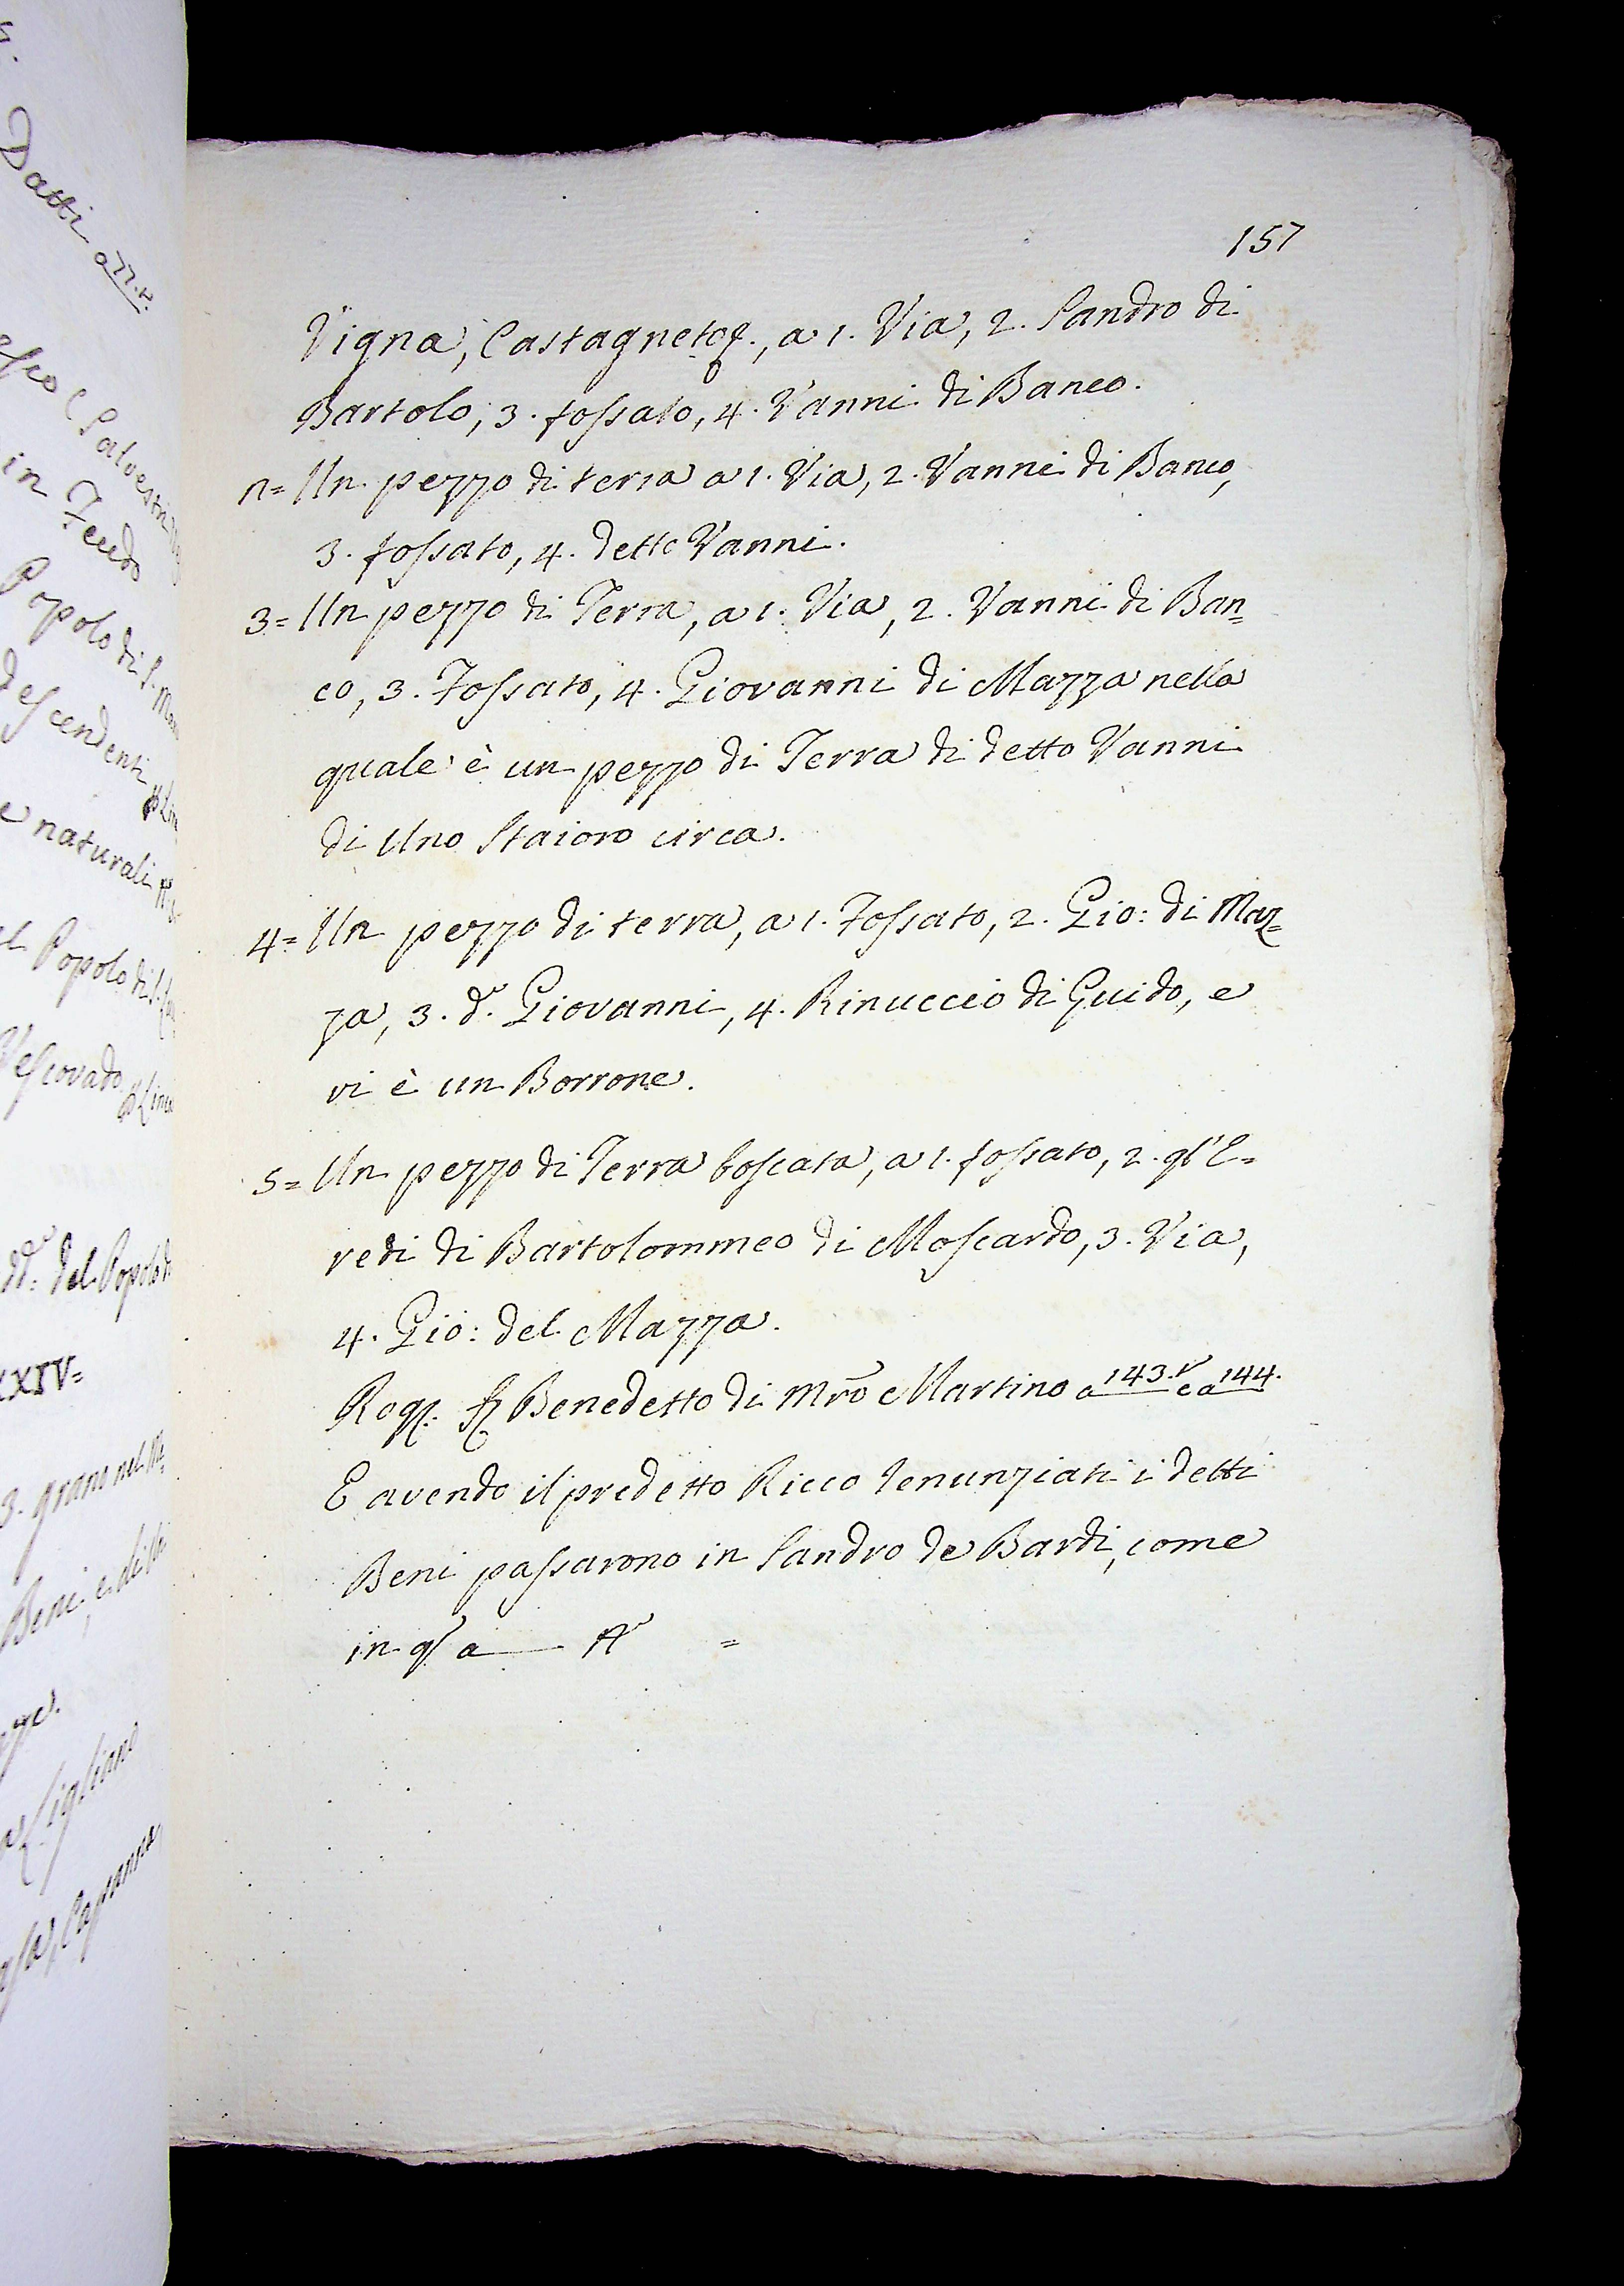 157
Vigna, Castagneto &., a 1. Via, 2. Sandro di
Bartolo, 3. fossato, 4. Vanni di Banco.
n= Un pezzo di terra a 1. Via, 2. Vanni di Banco,
3. fossato, 4. detto Vanni.
3= Un pezzo di Terra, a 1. Via, 2. Vanni di Ban=
co, 3. Fossato, 4. Giovanni di Mazza nella
quale è un pezzo di Terra di detto Vanni
di Uno Staioro circa.
4= Un pezzo di terra, a 1. Fossato, 2. Gio: di Maz=
za, 3. d.º Giovanni, 4. Rinuccio di Guido, e
vi è un Borrone.
5= Un pezzo di Terra boscata, a 1. fossato, 2. gl'E=
redi di Bartolommeo di Moscardo, 3. Via,
4. Gio: del Mazza.
Rog. Benedetto di Mrõ Martino a 143.v e a 144.
E avendo il predetto Ricco renunziati i detti
Beni passarono in Sandro de Bardi, come
in a =
Datti
in Feudo
Popolo di S.
descendenti
e naturali
Popolo di
Vescovado
del Popolo
XXIV=
3. grano nel
Beni, e di